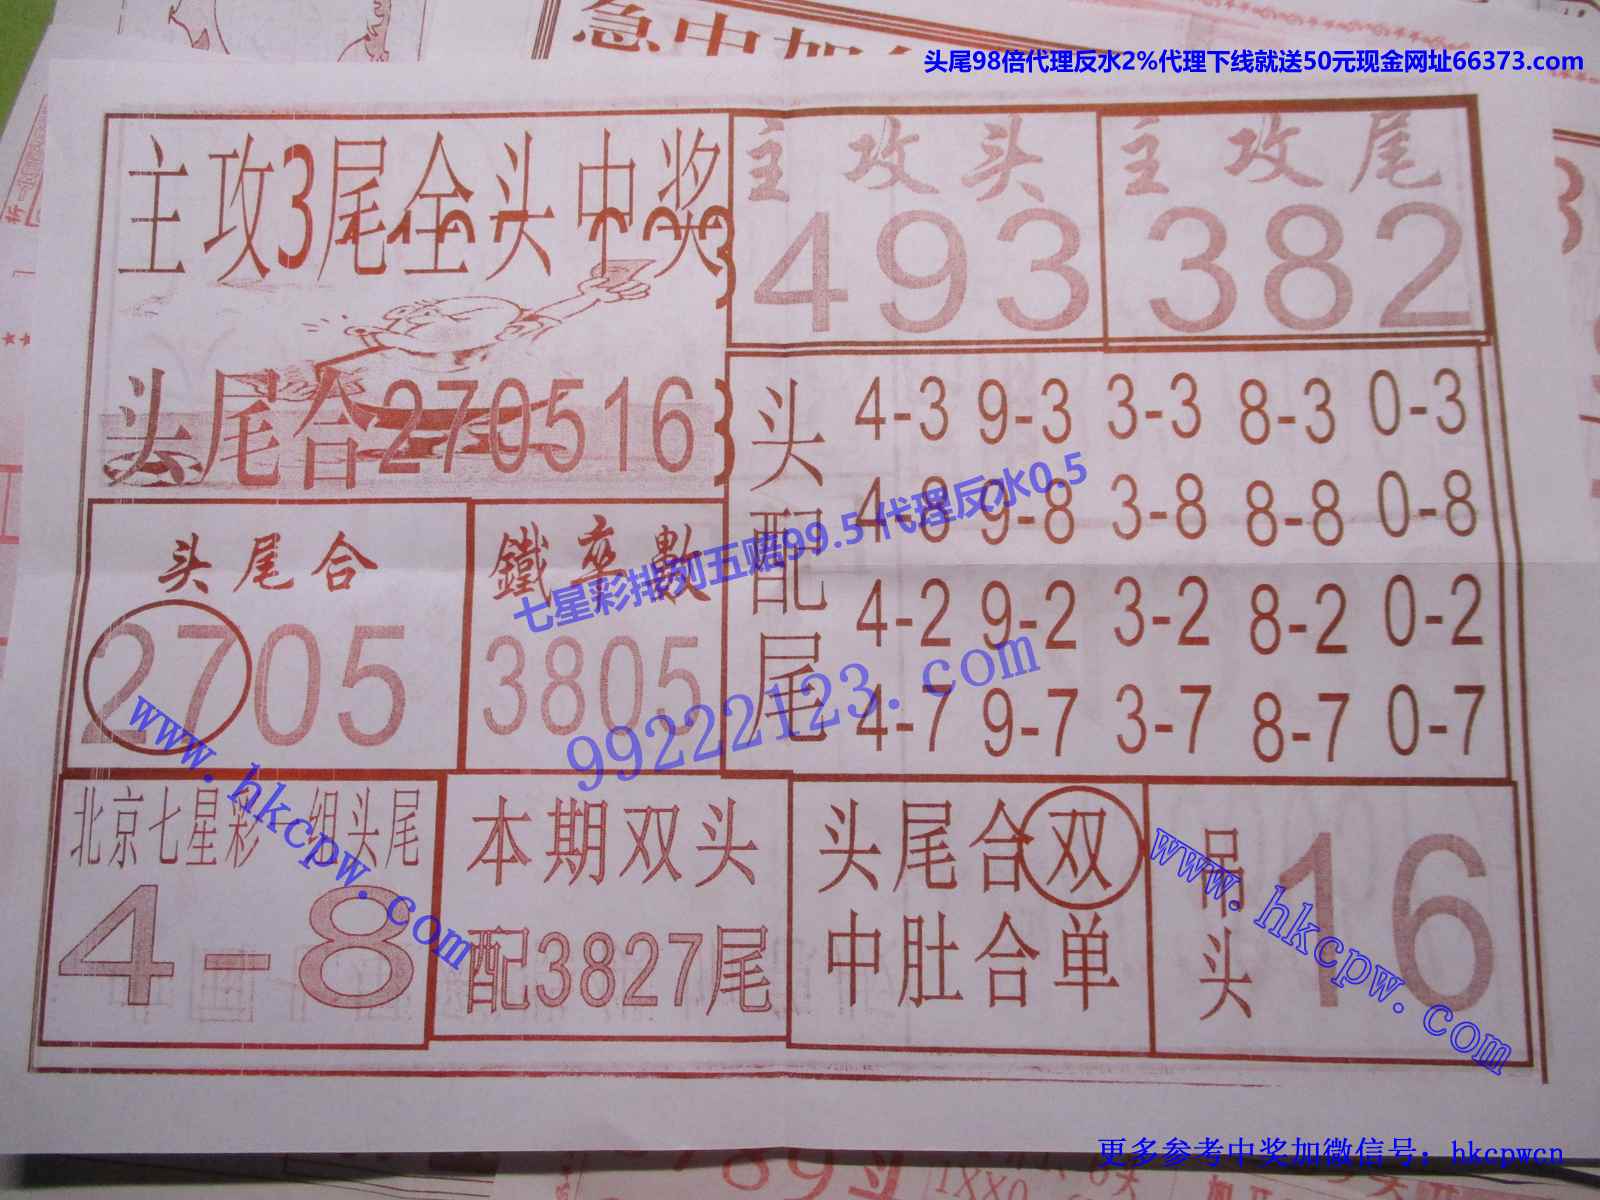 急中
头尾98倍代理反水2%代理下线就送50元现金网址66373.com
主攻3尾全头中奖
主攻头
493
主攻尾
382
头尾合270516
头配尾
4-3 9-3 3-3 8-3 0-3
4-8 9-8 3-8 8-8 0-8
4-2 9-2 3-2 8-2 0-2
4-7 9-7 3-7 8-7 0-7
头尾合
2705
鐵座數
3805
七星彩排列五赔99.5代理反水0.5
99222123.com
北京七星彩一组头尾
4-8
本期双头
配3827尾
头尾合双
中肚合单
吊头
16
www.hkcpw.com
www.hkcpw.com
789头
更多参考中奖加微信号：hkcpwcn